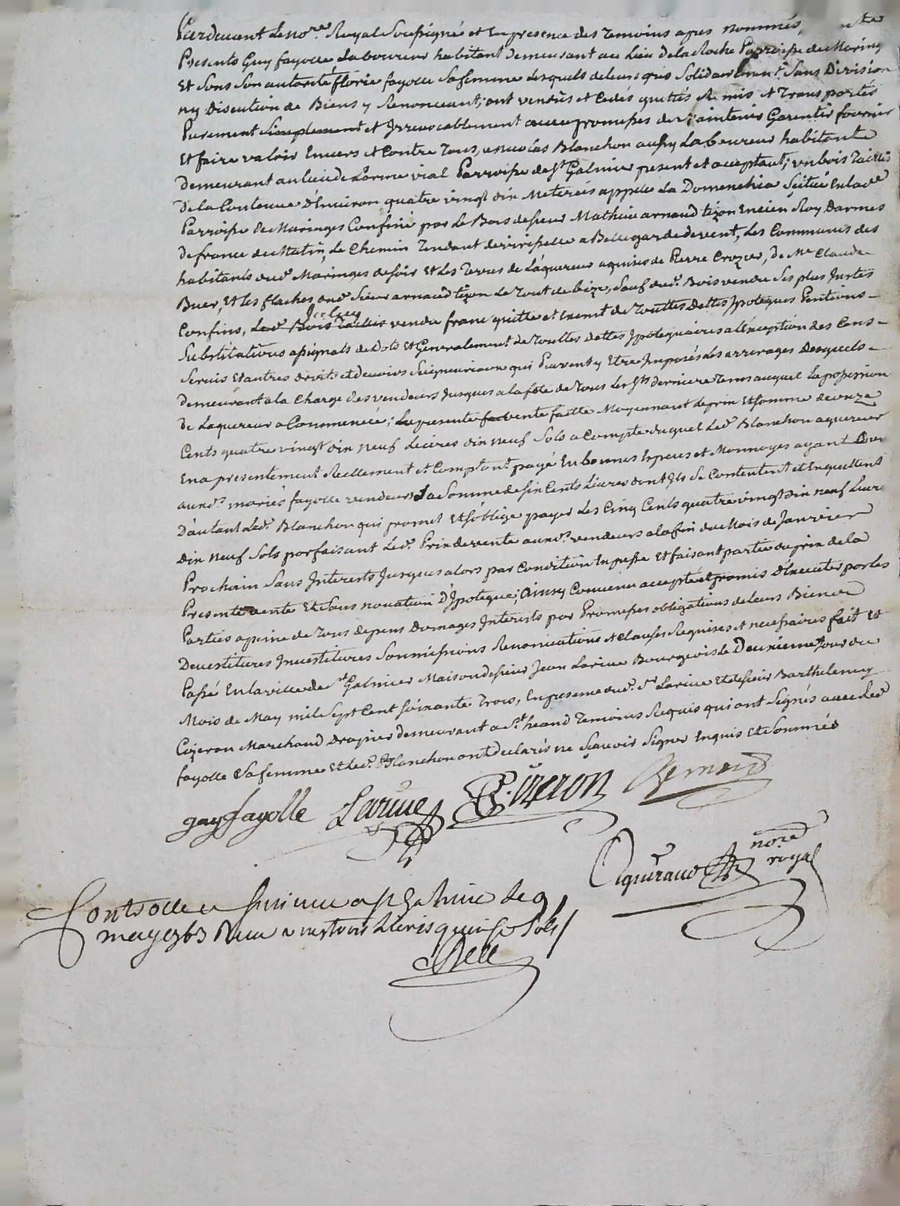 Pardevant Le no.re Royal Soussigné et En presence des Temoins apes nommés,
Presents Guy fayolle Laboureur habitant demeurant au Lieu de la Roche Parroisse de Maringe
Et Sous Son autorité florie fayolle Sa femme Lesquels de leur gré Solidairement Sans Division
ny Discution de Biens y Renonceant, ont vendus et Cedés quittés Remis et Transportés
Purement Simplement et Irrevocablement avec promesses de maintenir Garentir fournir
Et faire valoir Envers et Contre Tous, a Nicolas Blanchon aussy Laboureur habitant
demeurant au Lieu de Lorme vial Parroisse de St Galmier present et acceptant, un bois Taillis
de la Contenue D'Environ quatre vingt dix Meterees appellé La Domenchia Scitué En lad.e
Parroisse de Maringes Confiné par le Bois de sieur Mathieu arnaud tizon Encien Roy Darmes
de france de Matin, Le Chemin Tendant de virigneux a Bellegarde de vent, Les Communes des
habitants dud. Maringes de soir Et Les Terres de L'aquereur aquises de Pierre Crozier, de Me Claude
Buer, Et Les flaches dud. Sieur arnaud tizon Le Tout de bize, Sauf dud. Bois vendu Ses plus Justes
Confins, Led. Bois Taillis vendu franc quitte et Exemt de Touttes Dettes Ipoteques Pentions
Substitutions apignats de Dots Et Generalement de Touttes dettes Ipotequaires a L'exception des Cens
Servis Et autres droits et devoirs Seigneuriaux qui Peuvent y Etre Imposés Les arrerages Desquels
demeurant a la Charge des vendeurs Jusques a la fête de Tous Les Sts derniere Tems auquel La possession
de Laquereur a Commencée; La presente vente faitte Moyennant Le prix Et somme de onze
Cents quatre vingt dix neuf Livres dix neuf Sols a Compte duquel Led. Blanchon aquereur
En a presentement Reellement et Comptant payé En bonnes Especes et Monnoyes ayant Cours
aux d. mariés fayolle vendeurs La Somme de six Cents Livres dont Ils Se Contentent et En quittent
D'autant Led. Blanchon qui promet Et s'oblige payer Les Cinq Cents quatre vingt dix neuf Livres
Dix neuf Sols parfaisant Led. Prix de vente aux d. vendeurs a la fin du Mois de Janvier
Prochain Sans Interests Jusques alors par Condition Expresse Et faisant partie du prix de la
Presente vente Et Sans novation D'Ipoteque; ainsy Convenu accepté et promis D'Executer par les
Parties a peine de Tous depens Domages Interests par Promesses obligations de leurs Biens
Devestitures Investitures Sommissions Renonciations et Clauses Requises et necessaires fait Et
Passé En la ville de St Galmier Maison de sieur Jean Larive Bourgeois Le Deuxieme Jour du
Mois de May mil Sept Cent Soixante Trois, En presence dud. Sr Larive Et de sieur Barthelemy
Cizeron Marchand Drapier demeurant a St heand Temoins Requis qui ont Signés avec Led.
fayolle Sa femme Et Led. Blanchon ont Declarés ne Sçavoir Signer Enquis Et Sommés
guy fayolle Larive B. Cizeron
no.re royal
Controllé a St Galmier Le 9
may 1763 Reçu Sols